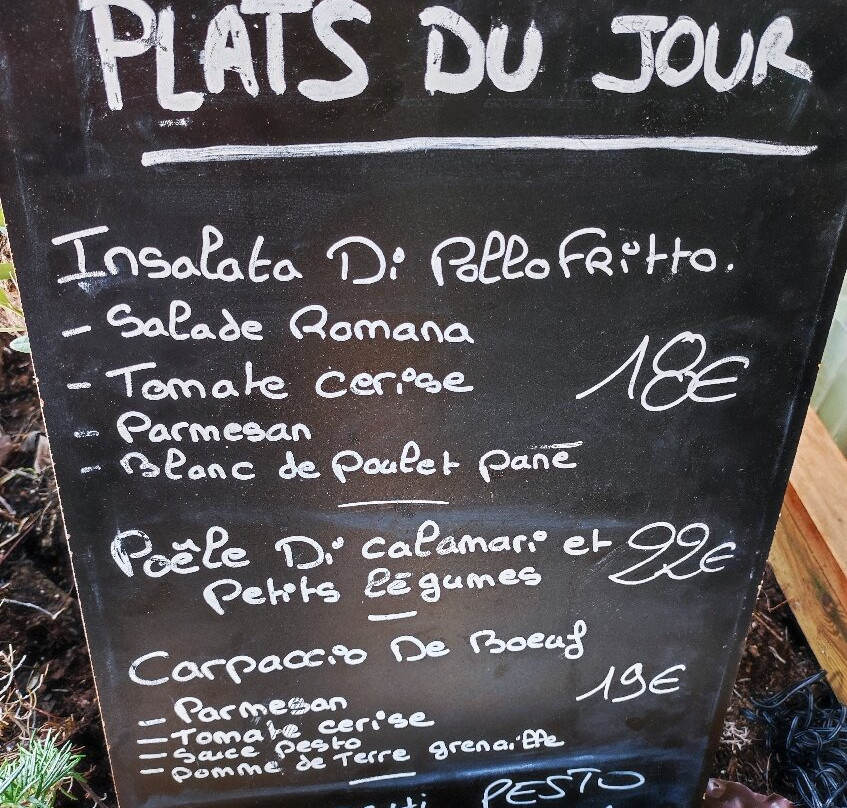 PLATS DU JOUR
Insalata Di Pollo FRitto.
- Salade Romana
- Tomate cerise 18€
- Parmesan
- Blanc de poulet pané
Poêle Di calamari et 22€
Petits légumes
Carpaccio De Boeuf
19€
- Parmesan
- Tomate cerise
- sauce pesto
- pomme de Terre grenaille
PESTO